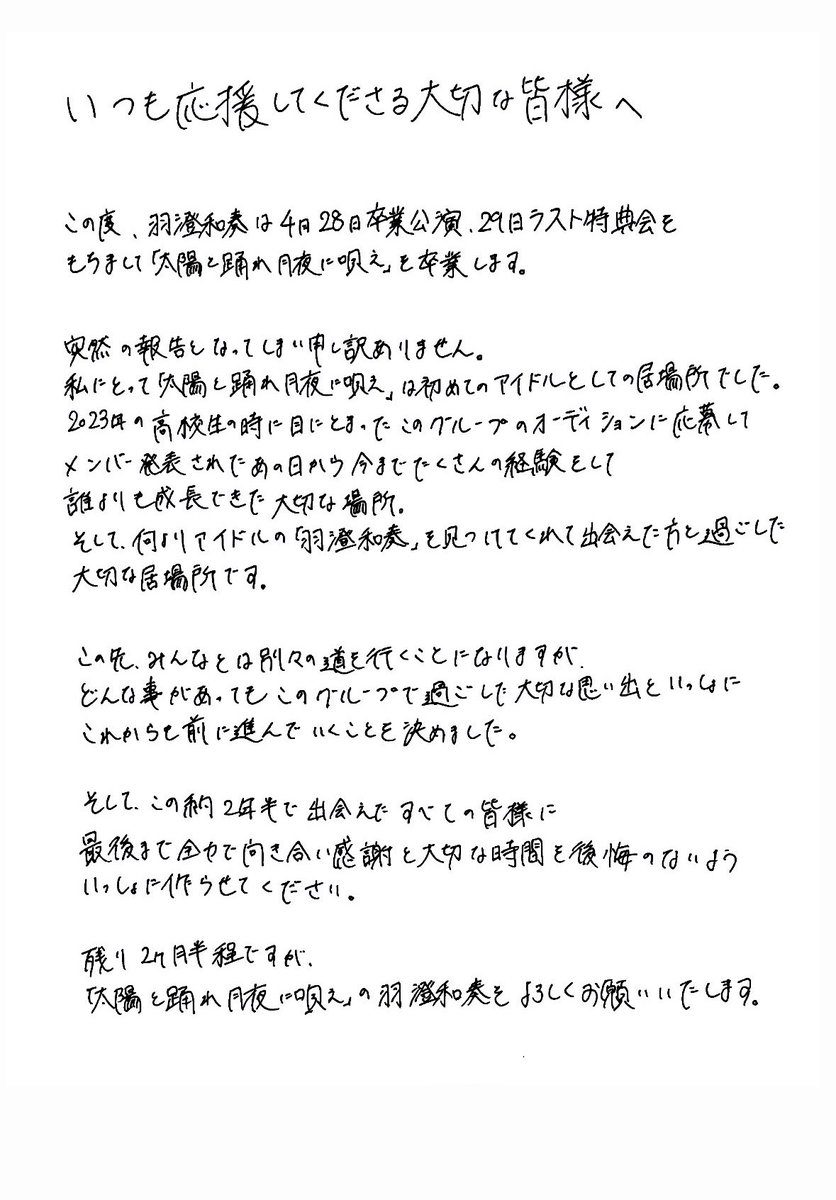 いつも応援してくださる大切な皆様へ
この度、羽澄和奏は4月28日卒業公演、29日ラスト特典会を
もちまして「太陽と踊れ月夜に唄え」を卒業します。
突然の報告となってしまい申し訳ありません。
私にとって「太陽と踊れ月夜に唄え」は初めてのアイドルとしての居場所でした。
2023年の高校生の時に目にとまったこのグループのオーディションに応募して
メンバー発表されたあの日から今までたくさんの経験をして
誰よりも成長できた大切な場所。
そして、何よりアイドルの「羽澄和奏」を見つけてくれて出会えた方と過ごした
大切な居場所です。
この先、みんなとは別々の道を行くことになりますが、
どんな事があってもこのグループで過ごした大切な思い出といっしょに
これからも前に進んでいくことを決めました。
そして、この約2年半で出会えたすべての皆様に
最後まで全力で向き合い感謝と大切な時間を後悔のないよう
いっしょに作らせてください。
残り2ヶ月半程ですが、
「太陽と踊れ月夜に唄え」の羽澄和奏をよろしくお願いいたします。